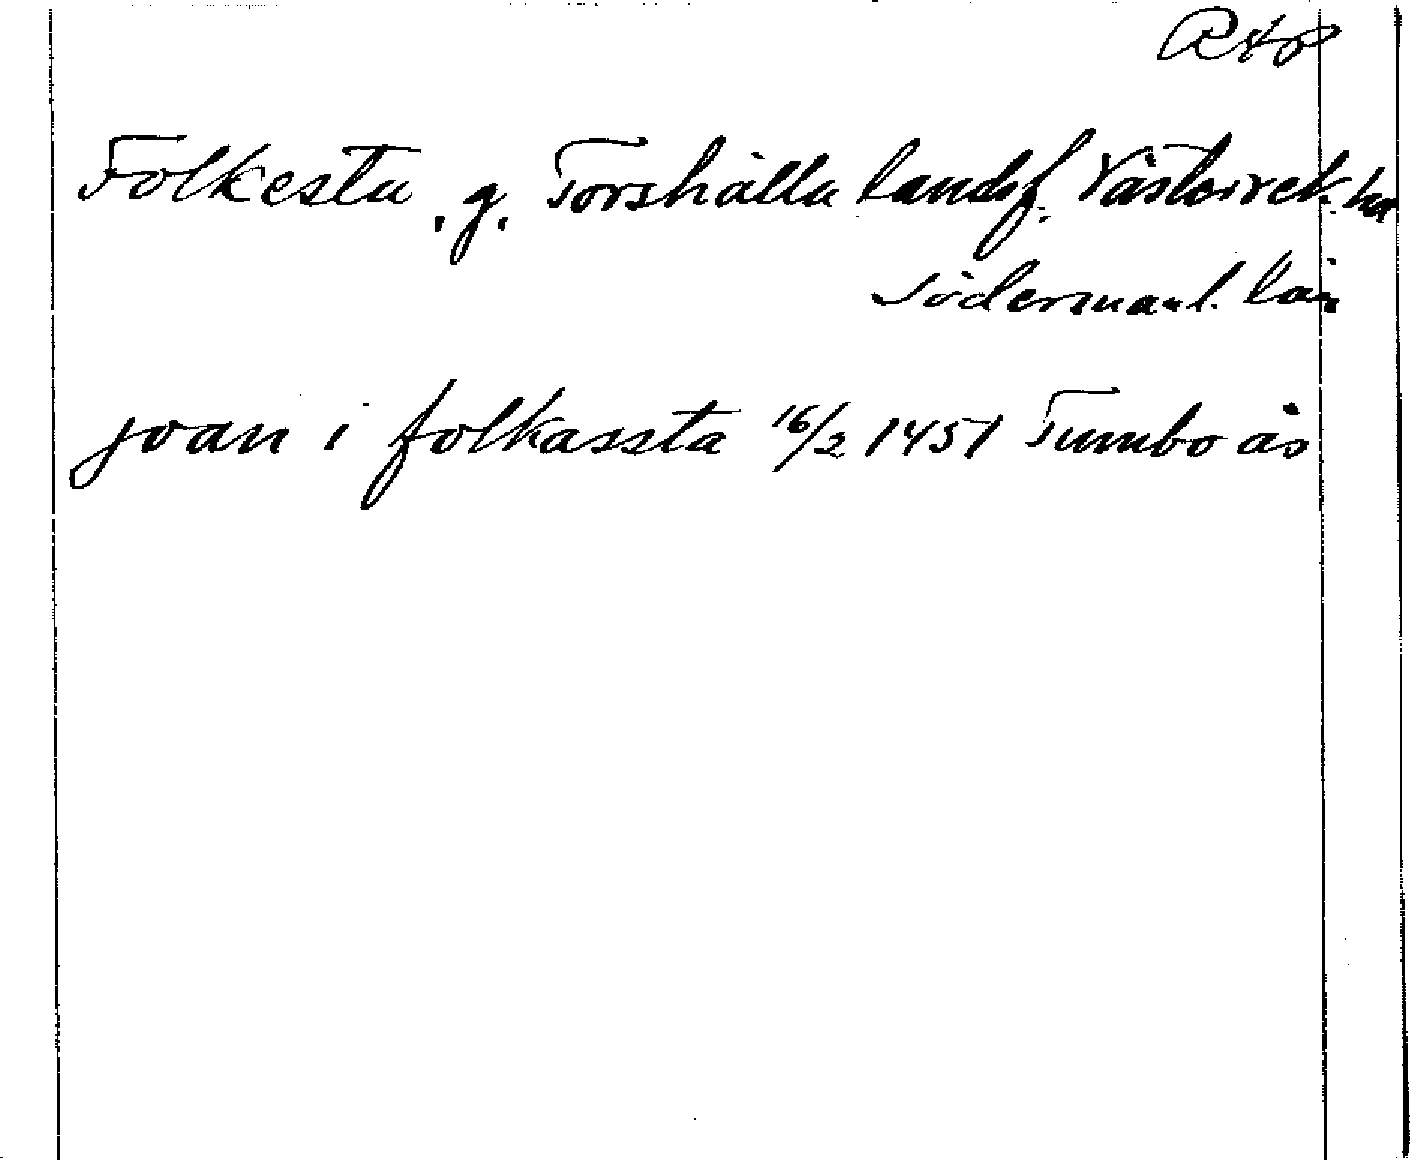 RAP
Folkesta, g. Torshälla landsf. Västerrek. hd
Södermanl. län
joan i folkassta 16/2 1451 Tumbo ås